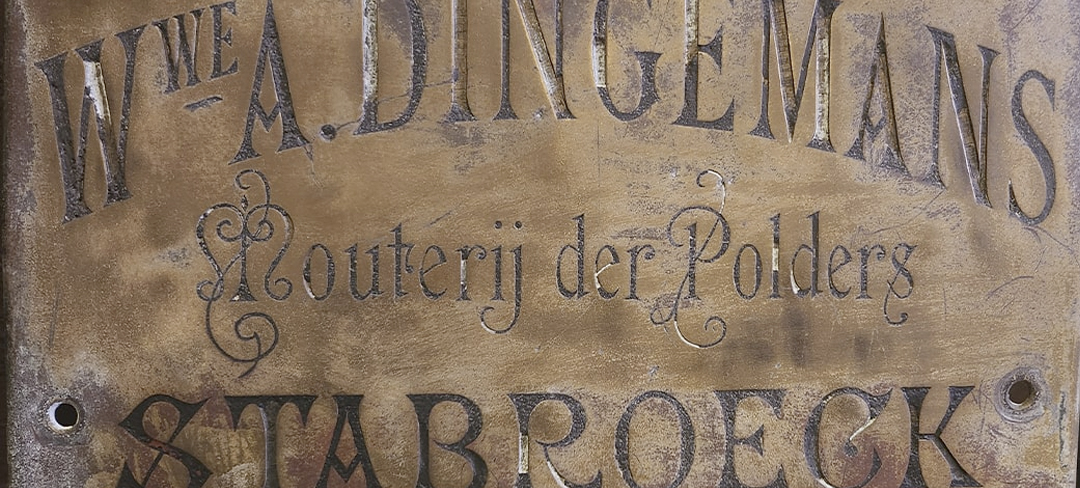 WWE A. DINGEMANS
Mouterij der Polders
STABROECK